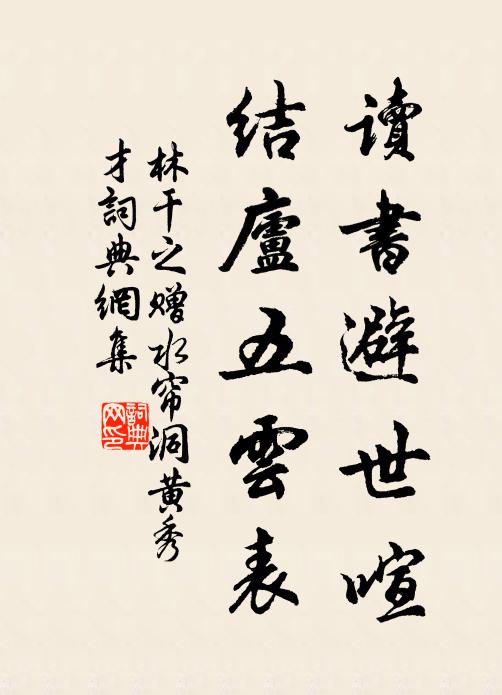 讀書避世喧
结廬五雲表
林干之赠水帘洞黄秀
才詞典網集
詞典
网印